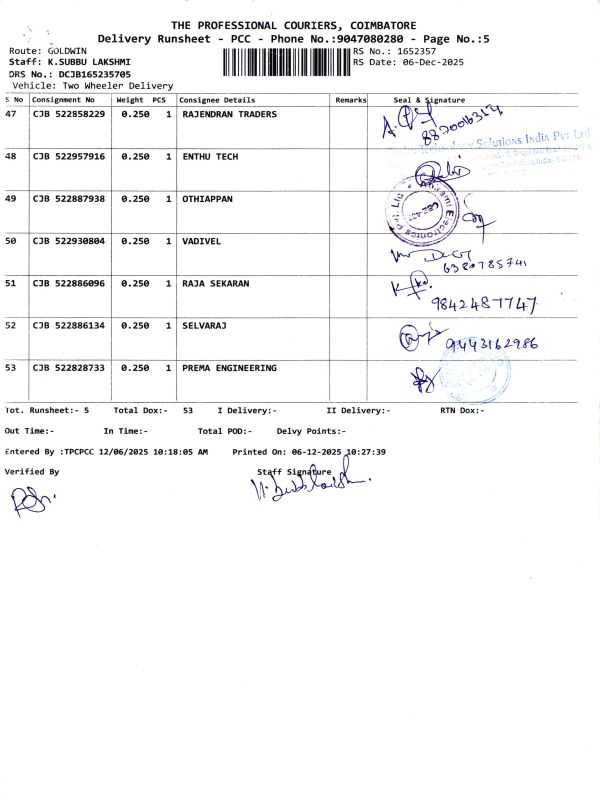 THE PROFESSIONAL COURIERS, COIMBATORE
Delivery Runsheet - PCC - Phone No.:9047080280 - Page No.:5
Route: GOLDWIN
RS No.: 1652357
Staff: K.SUBBU LAKSHMI
RS Date: 06-Dec-2025
DRS No.: DCJB165235705
Vehicle: Two Wheeler Delivery
S No Consignment No Weight PCS Consignee Details Remarks Seal & Signature
47 CJB 522858229 0.250 1 RAJENDRAN TRADERS
Solutions India Pvt Ltd
48 CJB 522957916 0.250 1 ENTHU TECH
49 CJB 522887938 0.250 1 OTHIAPPAN
Electronics Pvt. Ltd
50 CJB 522930804 0.250 1 VADIVEL
6380785741
51 CJB 522886096 0.250 1 RAJA SEKARAN
9842487747
52 CJB 522886134 0.250 1 SELVARAJ
9443162986
53 CJB 522828733 0.250 1 PREMA ENGINEERING
Tot. Runsheet:- 5 Total Dox:- 53 I Delivery:- II Delivery:- RTN Dox:-
Out Time:- In Time:- Total POD:- Delvy Points:-
Entered By :TPCPCC 12/06/2025 10:18:05 AM Printed On: 06-12-2025 10:27:39
Verified By Staff Signature